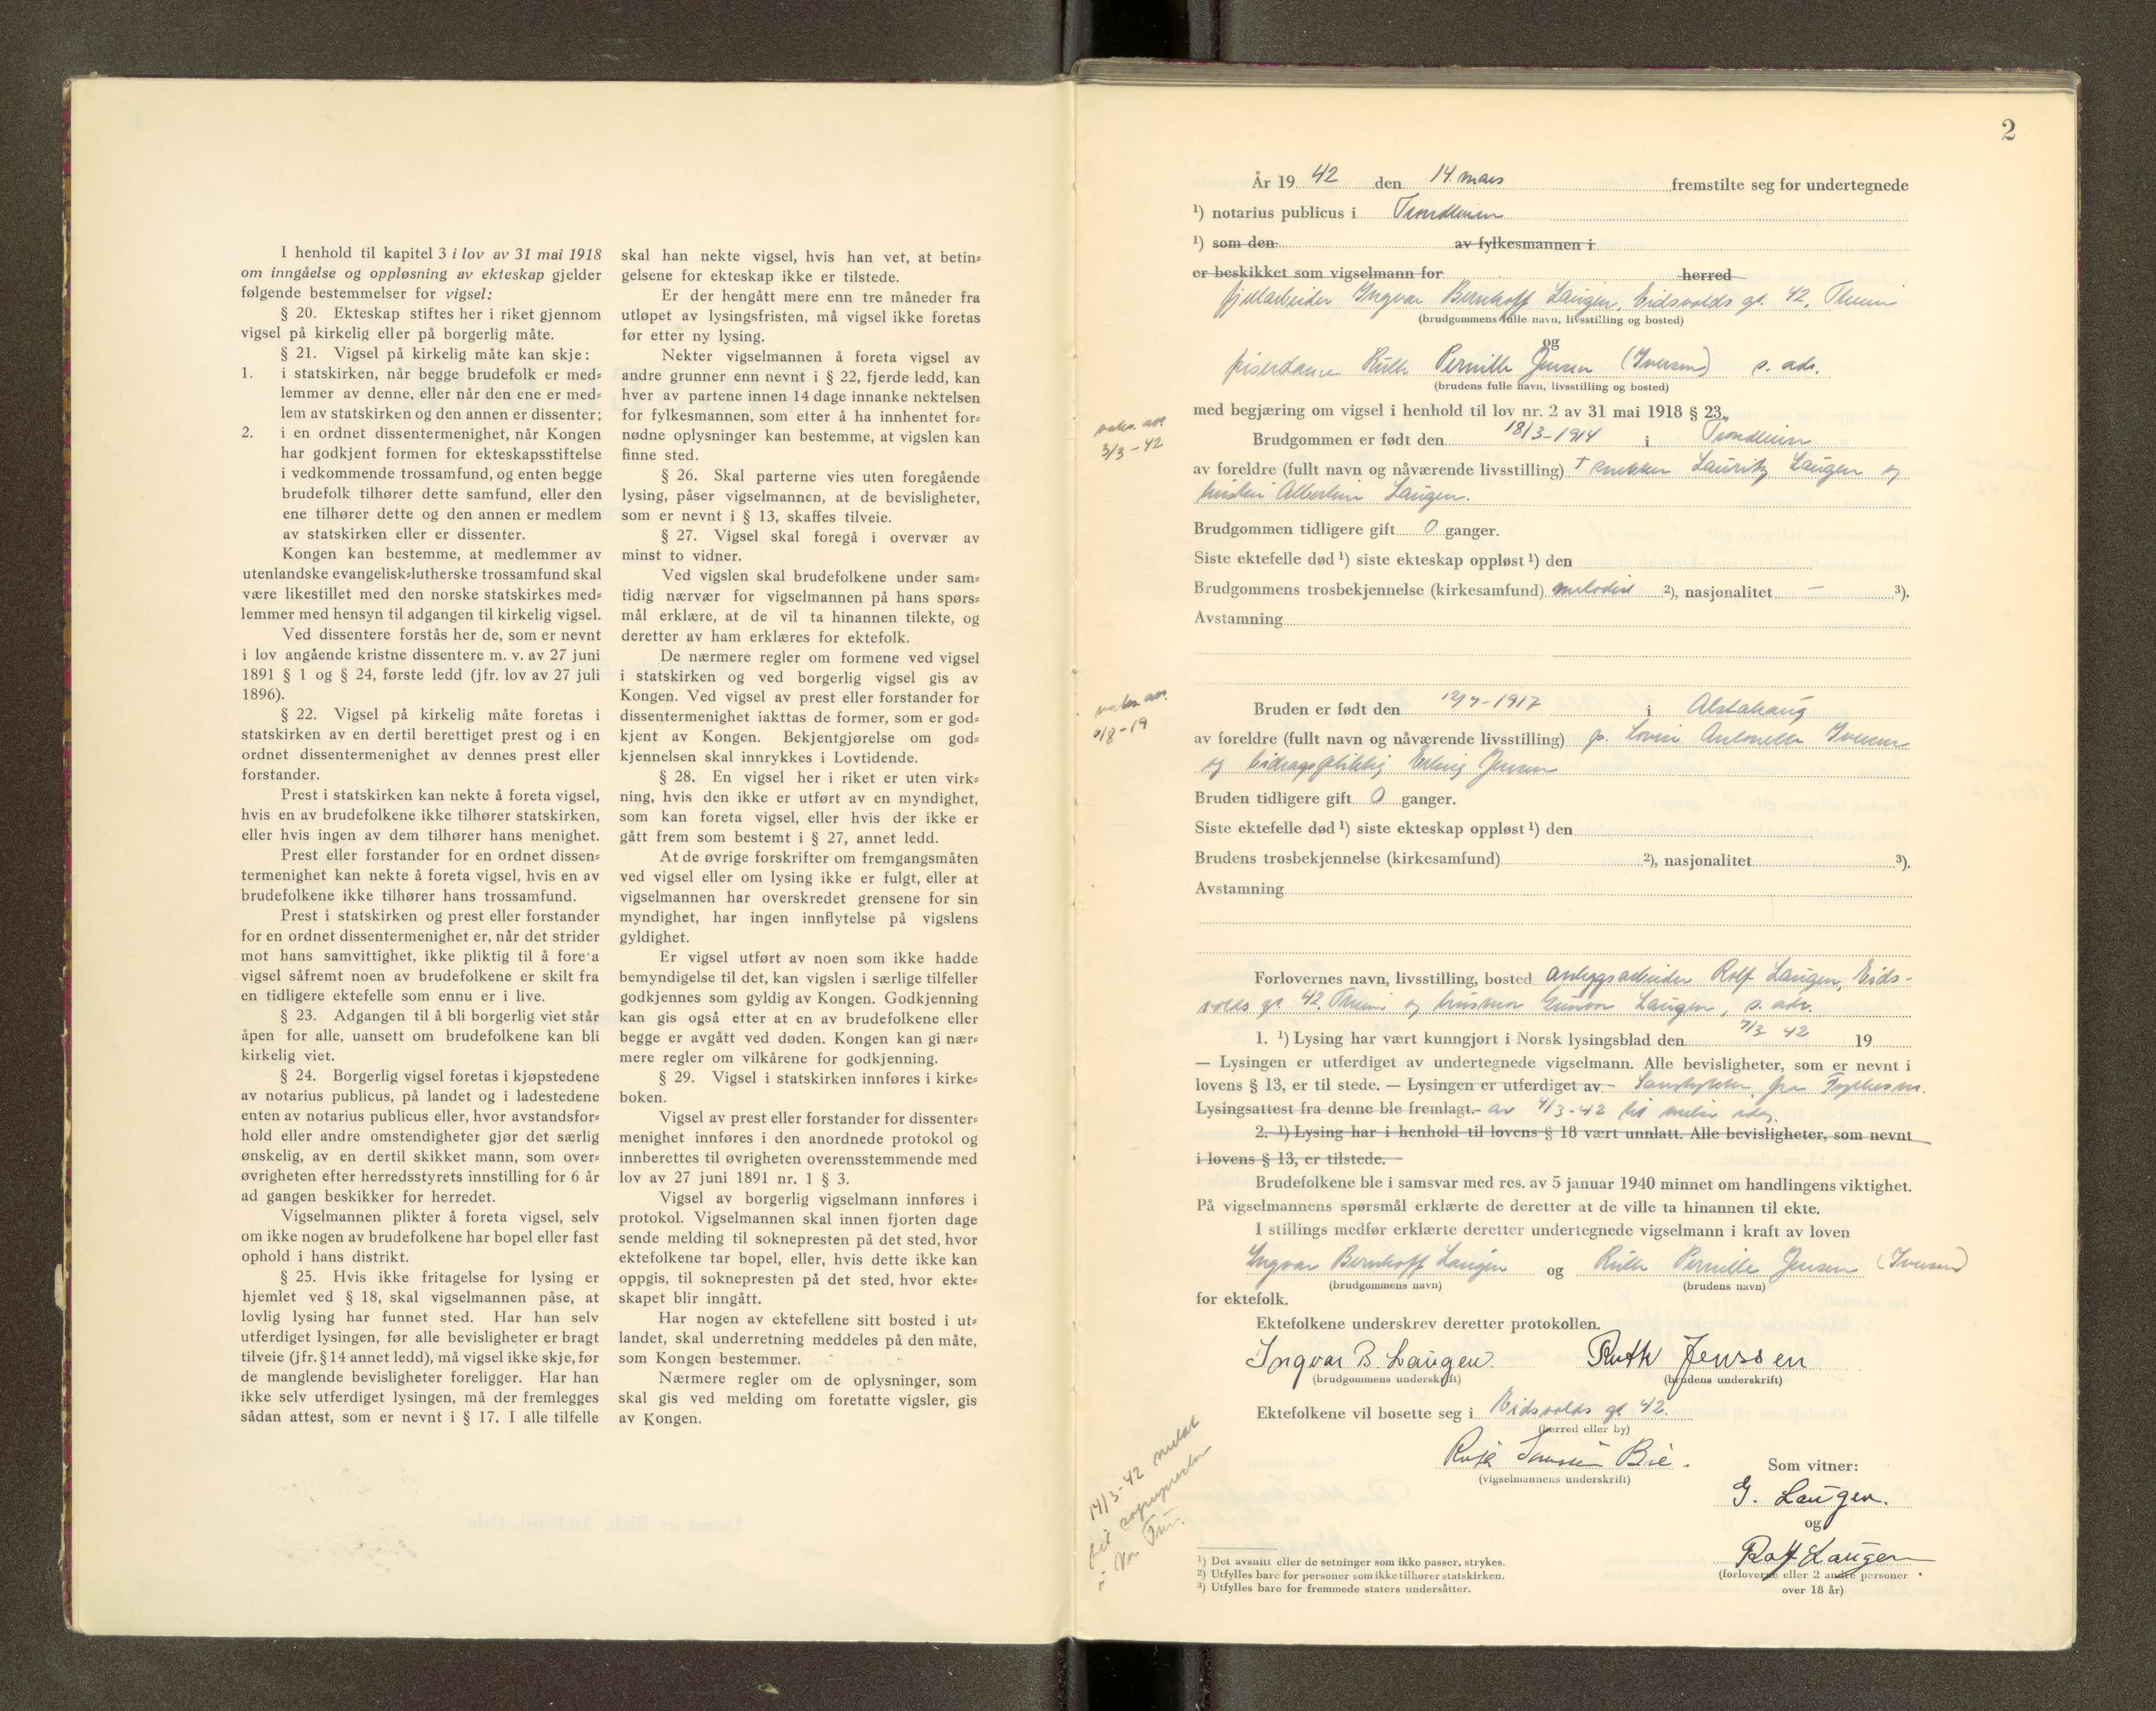 I henhold til kapitel 3 i lov av 31 mai 1918
om inngåelse og oppløsning av ekteskap gjelder
følgende bestemmelser for vigsel:
§ 20. Ekteskap stiftes her i riket gjennom
vigsel på kirkelig eller på borgerlig måte.
§ 21. Vigsel på kirkelig måte kan skje:
1. i statskirken, når begge brudefolk er med-
lemmer av denne, eller når den ene er med-
lem av statskirken og den annen er dissenter;
2. i en ordnet dissentermenighet, når Kongen
har godkjent formen for ekteskapsstiftelse
i vedkommende trossamfund, og enten begge
brudefolk tilhører dette samfund, eller den
ene tilhører dette og den annen er medlem
av statskirken eller er dissenter.
Kongen kan bestemme, at medlemmer av
utenlandske evangelisk-lutherske trossamfund skal
være likestillet med den norske statskirkes med-
lemmer med hensyn til adgangen til kirkelig vigsel.
Ved dissentere forstås her de, som er nevnt
i lov angående kristne dissentere m. v. av 27 juni
1891 § 1 og § 24, første ledd (jfr. lov av 27 juli
1896).
§ 22. Vigsel på kirkelig måte foretas i
statskirken av en dertil berettiget prest og i en
ordnet dissentermenighet av dennes prest eller
forstander.
Prest i statskirken kan nekte å foreta vigsel,
hvis en av brudefolkene ikke tilhører statskirken,
eller hvis ingen av dem tilhører hans menighet.
Prest eller forstander for en ordnet dissen-
termenighet kan nekte å foreta vigsel, hvis en av
brudefolkene ikke tilhører hans trossamfund.
Prest i statskirken og prest eller forstander
for en ordnet dissentermenighet er, når det strider
mot hans samvittighet, ikke pliktig til å fore'a
vigsel såfremt noen av brudefolkene er skilt fra
en tidligere ektefelle som ennu er i live.
§ 23. Adgangen til å bli borgerlig viet står
åpen for alle, uansett om brudefolkene kan bli
kirkelig viet.
§ 24. Borgerlig vigsel foretas i kjøpstedene
av notarius publicus, på landet og i ladestedene
enten av notarius publicus eller, hvor avstandsfor-
hold eller andre omstendigheter gjør det særlig
ønskelig, av en dertil skikket mann, som over-
øvrigheten efter herredsstyrets innstilling for 6 år
ad gangen beskikker for herredet.
Vigselmannen plikter å foreta vigsel, selv
om ikke nogen av brudefolkene har bopel eller fast
ophold i hans distrikt.
§ 25. Hvis ikke fritagelse for lysing er
hjemlet ved § 18, skal vigselmannen påse, at
lovlig lysing har funnet sted. Har han selv
utferdiget lysingen, før alle bevisligheter er bragt
tilveie (jfr. § 14 annet ledd), må vigsel ikke skje, før
de manglende bevisligheter foreligger. Har han
ikke selv utferdiget lysingen, må der fremlegges
sådan attest, som er nevnt i § 17. I alle tilfelle
skal han nekte vigsel, hvis han vet, at betin-
gelsene for ekteskap ikke er tilstede.
Er der hengått mere enn tre måneder fra
utløpet av lysingsfristen, må vigsel ikke foretas
før etter ny lysing.
Nekter vigselmannen å foreta vigsel av
andre grunner enn nevnt i § 22, fjerde ledd, kan
hver av partene innen 14 dage innanke nektelsen
for fylkesmannen, som etter å ha innhentet for-
nødne oplysninger kan bestemme, at vigslen kan
finne sted.
§ 26. Skal parterne vies uten foregående
lysing, påser vigselmannen, at de bevisligheter,
som er nevnt i § 13, skaffes tilveie.
§ 27. Vigsel skal foregå i overvær av
minst to vidner.
Ved vigslen skal brudefolkene under sam-
tidig nærvær for vigselmannen på hans spørs-
mål erklære, at de vil ta hinannen tilekte, og
deretter av ham erklæres for ektefolk.
De nærmere regler om formene ved vigsel
i statskirken og ved borgerlig vigsel gis av
Kongen. Ved vigsel av prest eller forstander for
dissentermenighet iakttas de former, som er god-
kjent av Kongen. Bekjentgjørelse om god-
kjennelsen skal innrykkes i Lovtidende.
§ 28. En vigsel her i riket er uten virk-
ning, hvis den ikke er utført av en myndighet,
som kan foreta vigsel, eller hvis der ikke er
gått frem som bestemt i § 27, annet ledd.
At de øvrige forskrifter om fremgangsmåten
ved vigsel eller om lysing ikke er fulgt, eller at
vigselmannen har overskredet grensene for sin
myndighet, har ingen innflytelse på vigslens
gyldighet.
Er vigsel utført av noen som ikke hadde
bemyndigelse til det, kan vigslen i særlige tilfeller
godkjennes som gyldig av Kongen. Godkjenning
kan gis også etter at en av brudefolkene eller
begge er avgått ved døden. Kongen kan gi nær-
mere regler om vilkårene for godkjenning.
§ 29. Vigsel i statskirken innføres i kirke-
boken.
Vigsel av prest eller forstander for dissenter-
menighet innføres i den anordnede protokol og
innberettes til øvrigheten overensstemmende med
lov av 27 juni 1891 nr. 1 § 3.
Vigsel av borgerlig vigselmann innføres i
protokol. Vigselmannen skal innen fjorten dage
sende melding til soknepresten på det sted, hvor
ektefolkene tar bopel, eller, hvis dette ikke kan
oppgis, til soknepresten på det sted, hvor ekte-
skapet blir inngått.
Har nogen av ektefellene sitt bosted i ut-
landet, skal underretning meddeles på den måte,
som Kongen bestemmer.
Nærmere regler om de oplysninger, som
skal gis ved melding om foretatte vigsler, gis
av Kongen.
2
År 19 42 den 14. mars fremstilte seg for undertegnede
1) notarius publicus i Trondheim
1) som den av fylkesmannen i
er beskikket som vigselmann for herred
fjellarbeider Ingvar Bernhoff Laugen, Eidsvolds gt. 42, Theim
(brudgommens fulle navn, livsstilling og bosted)
og
friserdame Ruth Pernille Jensen (Iversen) s. adr.
(brudens fulle navn, livsstilling og bosted)
med begjæring om vigsel i henhold til lov nr. 2 av 31 mai 1918 § 23.
3/3-42
Brudgommen er født den 18/3-1914 i Trondheim
av foreldre (fullt navn og nåværende livsstilling) † snekker Lauritz Laugen og
hustru Albertine Laugen.
Brudgommen tidligere gift 0 ganger.
Siste ektefelle død 1) siste ekteskap oppløst 1) den
Brudgommens trosbekjennelse (kirkesamfund) metodist 2), nasjonalitet — 3).
Avstamning
Bruden er født den 12/7-1917 i Alstahaug
av foreldre (fullt navn og nåværende livsstilling) p. Lovise Antonette Iversen
og bidragspliktig Erling Jensen
Bruden tidligere gift 0 ganger.
Siste ektefelle død 1) siste ekteskap oppløst 1) den
Brudens trosbekjennelse (kirkesamfund) 2), nasjonalitet 3).
Avstamning
Forlovernes navn, livsstilling, bosted anleggsarbeider Rolf Laugen, Eids-
volds gt. 42. Theim og husmor Gunvor Laugen, s. adr.
1. 1) Lysing har vært kunngjort i Norsk lysingsblad den 7/3 42 19
— Lysingen er utferdiget av undertegnede vigselmann. Alle bevisligheter, som er nevnt i
lovens § 13, er til stede. — Lysingen er utferdiget av - Samtykke fra Fylkesm.
Lysingsattest fra denne ble fremlagt. - av 4/3-42
2. 1) Lysing har i henhold til lovens § 18 vært unnlatt. Alle bevisligheter, som nevnt
i lovens § 13, er tilstede. —
Brudefolkene ble i samsvar med res. av 5 januar 1940 minnet om handlingens viktighet.
På vigselmannens spørsmål erklærte de deretter at de ville ta hinannen til ekte.
I stillings medfør erklærte deretter undertegnede vigselmann i kraft av loven
Ingvar Bernhoff Laugen og Ruth Pernille Jensen (Iversen)
(brudgommens navn) (brudens navn)
for ektefolk.
Ektefolkene underskrev deretter protokollen.
Ingvar B. Laugen. Ruth Jenssen
(brudgommens underskrift) (brudens underskrift)
Ektefolkene vil bosette seg i Eidsvolds gt. 42.
(herred eller by)
Bie.
(vigselmannens underskrift)
Som vitner:
G. Laugen.
og
Rolf Laugen
(forloverne eller 2 andre personer
over 18 år)
14/3-42 meldt
til sogneprest
i Vor Fru.
1) Det avsnitt eller de setninger som ikke passer, strykes.
2) Utfylles bare for personer som ikke tilhører statskirken.
3) Utfylles bare for fremmede staters undersåtter.